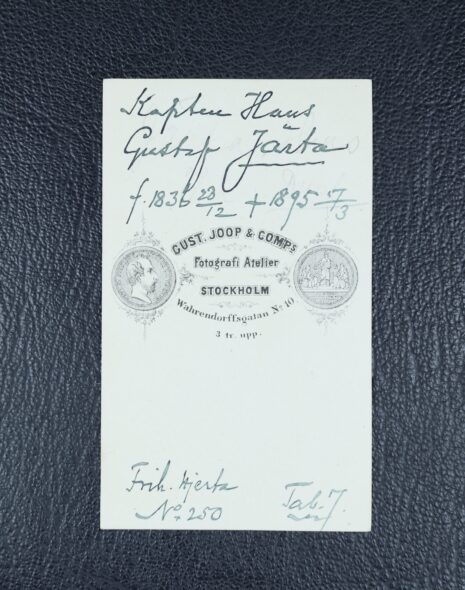 Kapten Hans
Gustaf Järta
f. 1836 23/12 + 1895 17/3
GUST. JOOP & COMP:s
Fotografi Atelier
STOCKHOLM
Wahrendorffsgatan No 10
3 tr. upp.
Frih. Hjerta
No. 250
Tab. 7.